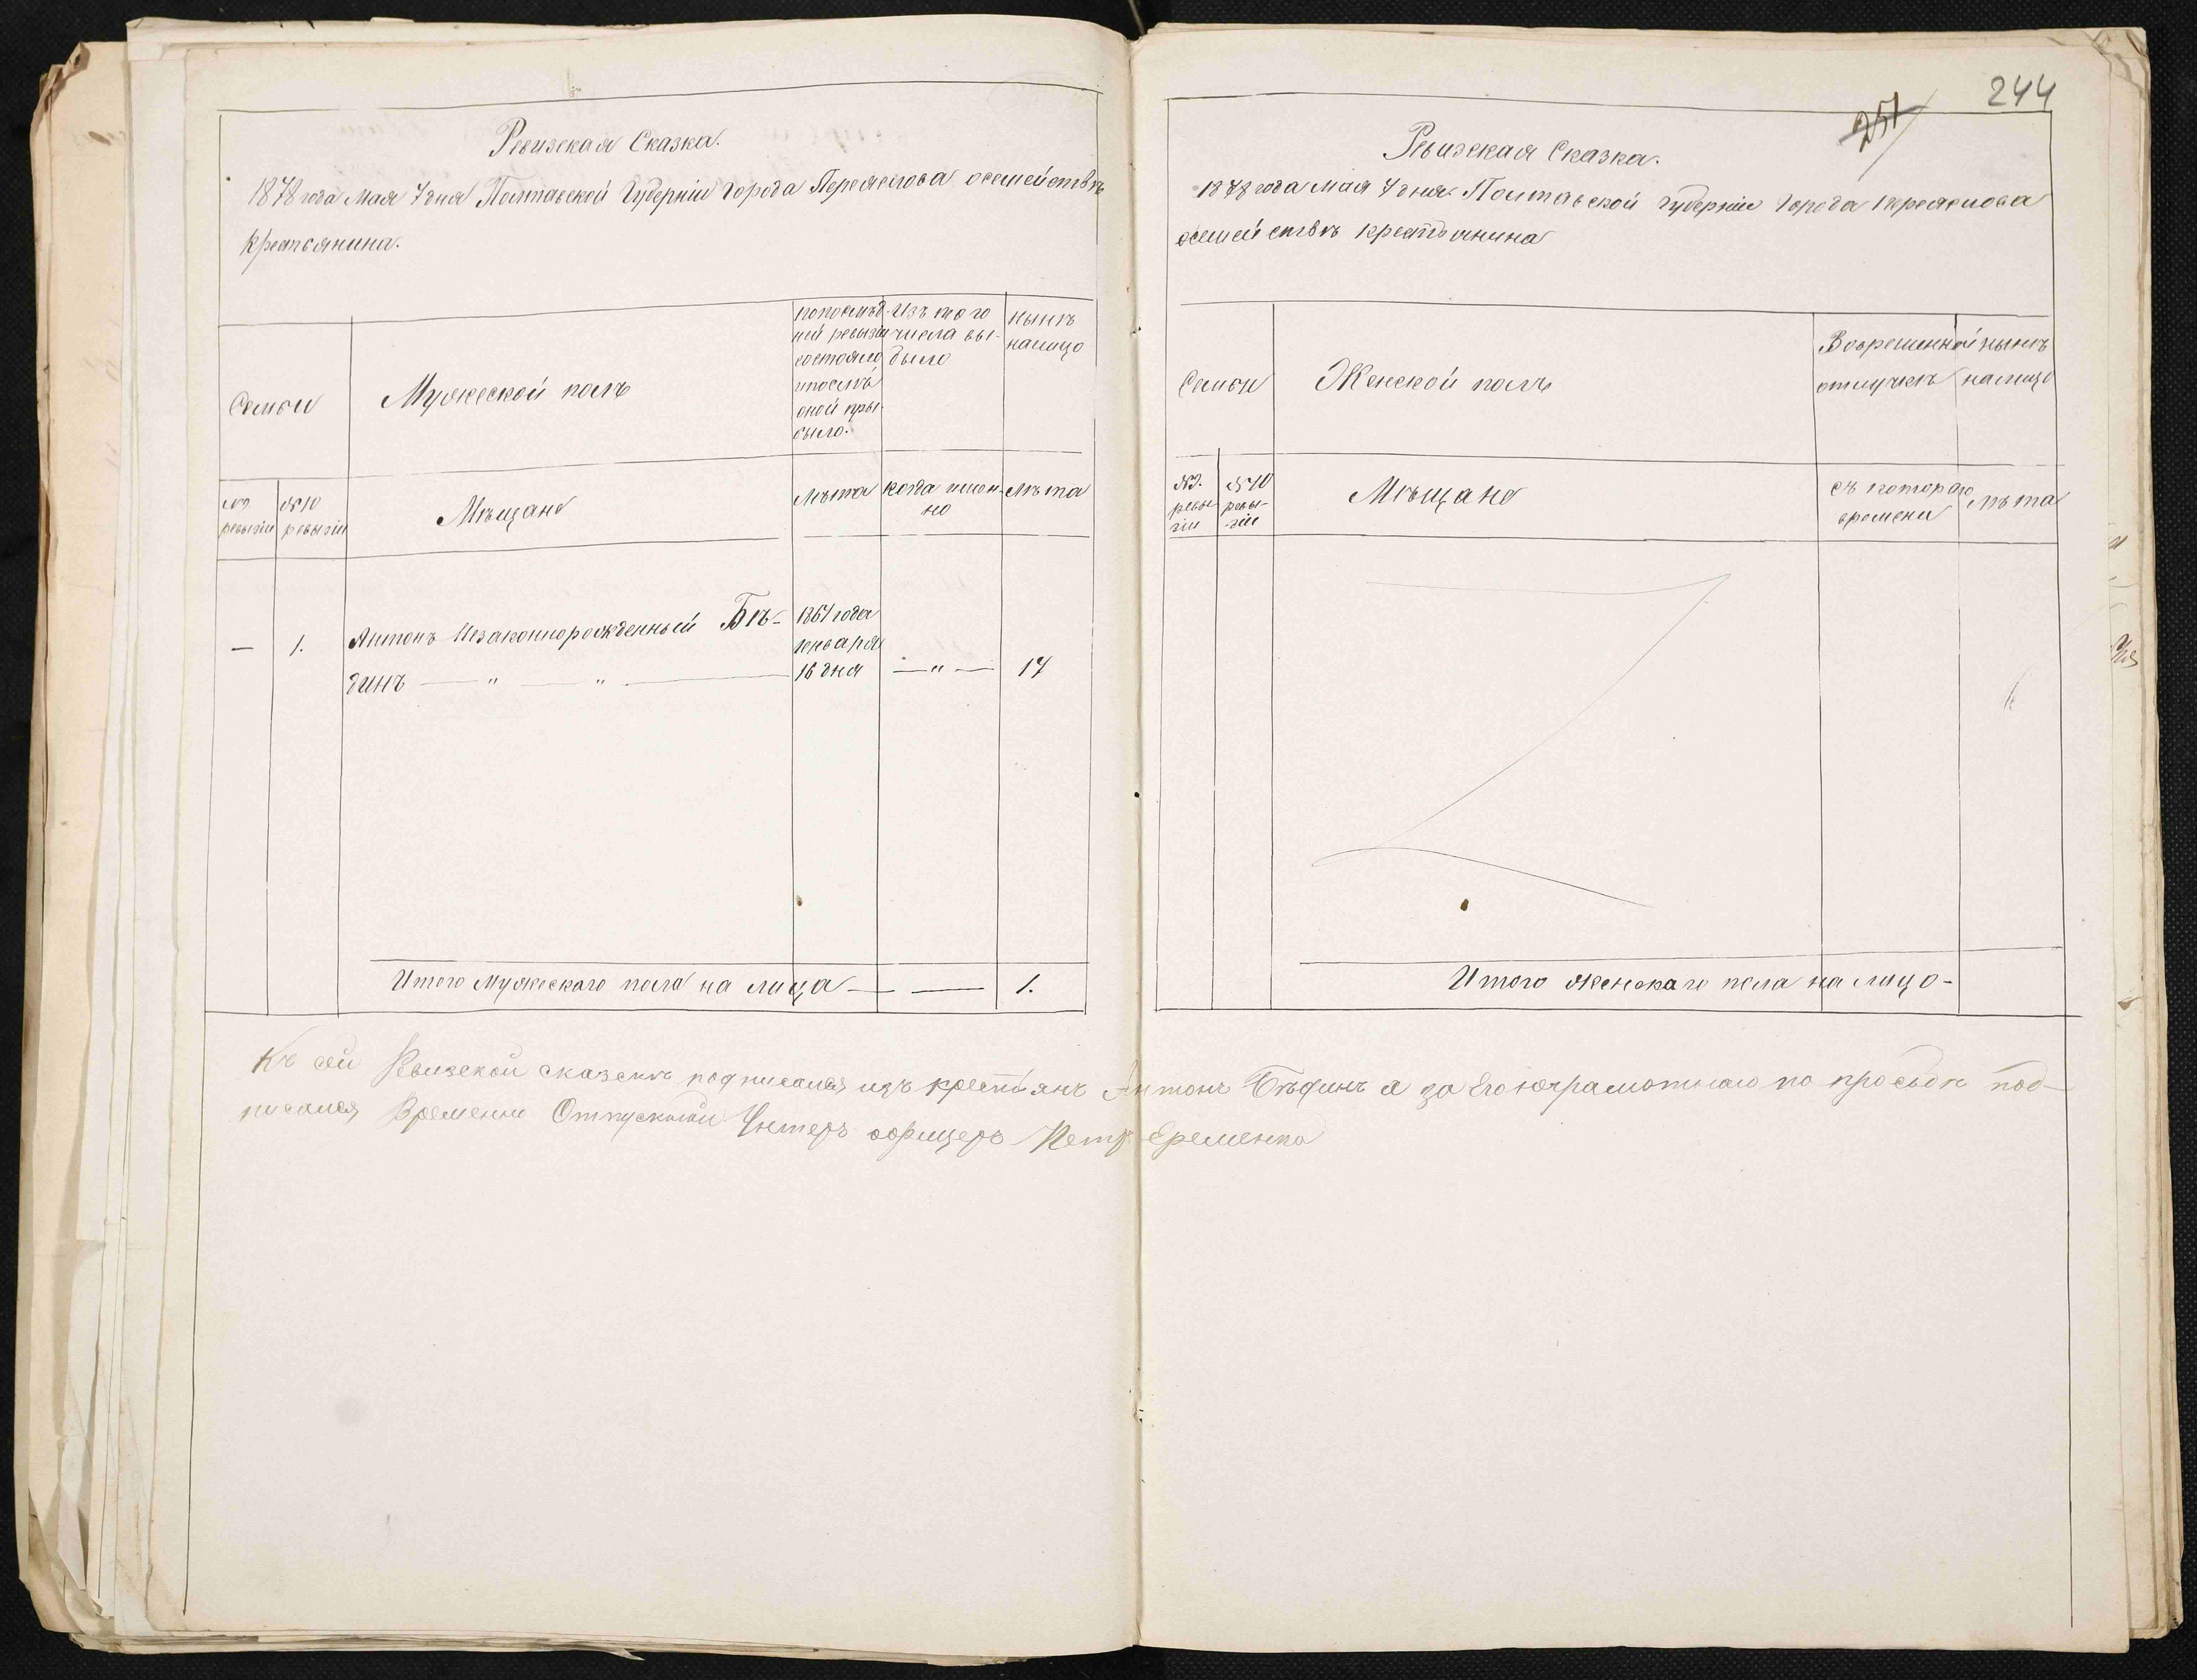 Ревизская Сказка.
1878 года Мая 7 дня Полтавской Губерніи города Переяслова осемействѣ
Крестьянина.
Семьи
Мужеской полъ
попослѣд-
ней ревызіи
состояло
ипослѣ
оной при-
было.
Изъ того
числа вы-
было
нынѣ
налицо
№9.
ревызіи
№10
ревызіи
Мѣщане
Лѣта
когда имен-
но
Лѣта
— 1. Антонъ Незаконнорожденный Бѣ-
динъ — " — " —
1861 года
генваря
16 дня
— " —
17
Итого Мужескаго пола на лица — — 1.
244
251
Ревизская Сказка.
1878 года Мая 7 дня. Полтавской губерніи города Переяслова
осемействѣ крестьянина
Семьи
Женской полъ
Вовременной
отлучкѣ
нынѣ
налицо
№9.
ревы-
зіи
№10
ревы-
зіи
Мѣщане
съ котораго
времени
Лѣта
Итого женскаго пола на лицо -
Къ сей Ревизской сказскѣ подписался изъ крестьянъ Антонъ Бѣдинъ а за Его неграмотнаго по просьбѣ под-
писался Временно Отпускной Унтеръ офицеръ Петръ Еременко